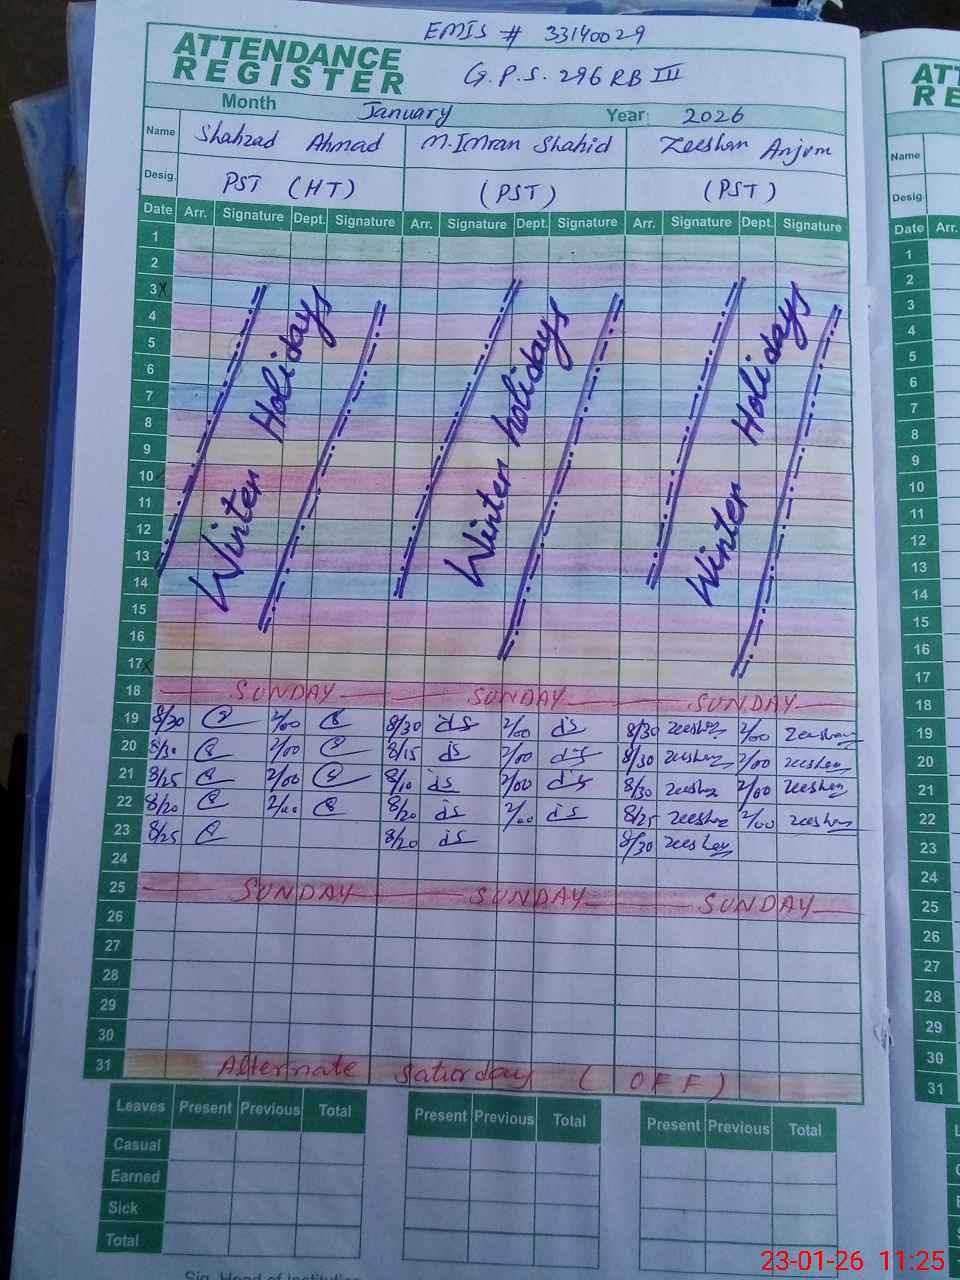 EMIS # 33140029
ATTENDANCE
REGISTER
G.P.S. 296 RB III
Month January Year: 2026
Name Shahzad Ahmad M.Imran Shahid Zeeshan Anjum
Desig. PST (HT) (PST) (PST)
Date Arr. Signature Dept. Signature Arr. Signature Dept. Signature Arr. Signature Dept. Signature
1
2
3 x
4
5
6
7
8
9
10
11
12
13
14
15
16
17 x
Winter Holidays Winter holidays Winter Holidays
18 SUNDAY SUNDAY SUNDAY
19 8/30 2/00 8/30 2/00 8/30 zeeshan 2/00 zeeshan
20 8/30 2/00 8/15 2/00 8/30 zeeshan 2/00 zeeshan
21 8/25 2/00 8/10 2/00 8/30 zeeshan 2/00 zeeshan
22 8/20 2/00 8/20 2/00 8/25 zeeshan 2/00 zeeshan
23 8/25 8/20 8/30 zeeshan
24
25 SUNDAY SUNDAY SUNDAY
26
27
28
29
30
31 Alternate Saturday (OFF)
Leaves Present Previous Total Present Previous Total Present Previous Total
Casual
Earned
Sick
Total
Sig. Head of
ATT
RE
Name
Desig.
Date Arr.
1
2
3
4
5
6
7
8
9
10
11
12
13
14
15
16
17
18
19
20
21
22
23
24
25
26
27
28
29
30
31
23-01-26 11:25